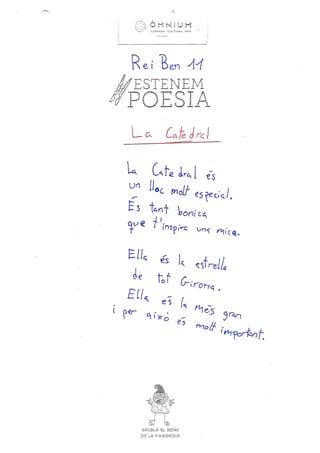 ÒMNIUM
LLENGUA CULTURA PAÍS
Rei Ben 11
ESTENEM
POESIA
La Catedral
La Catedral és
un lloc molt especial.
És tant bonica
que t'inspira una mica.
Ella és la estrella
de tot Girona.
Ella és la més gran
i per això és molt important.
ESCOLA EL BOSC
DE LA PABORDIA